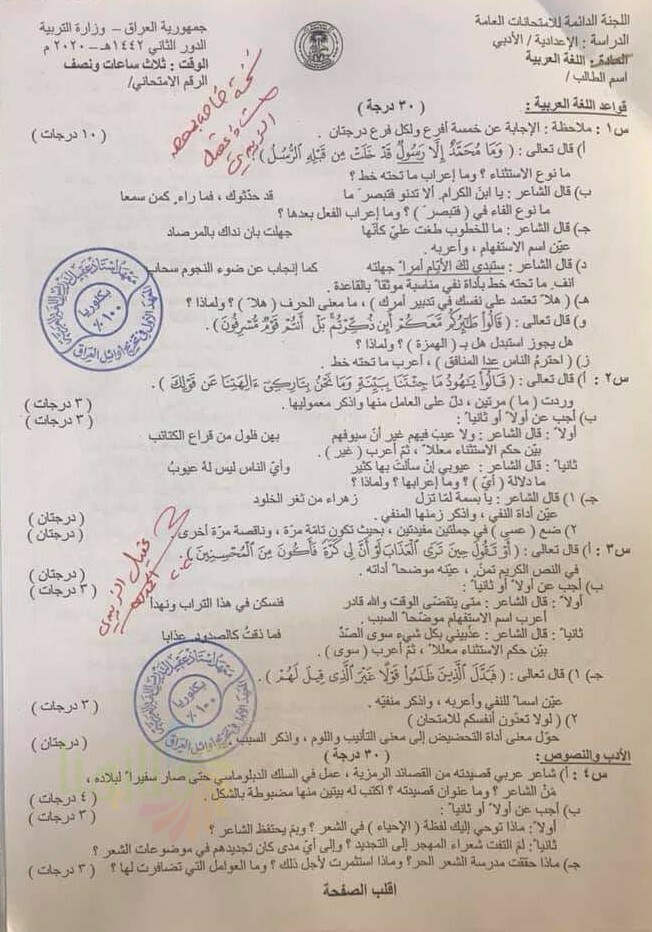 اللجنة الدائمة للامتحانات العامة
الدراسة : الإعدادية / الأدبي
المادة : اللغة العربية
اسم الطالب /
جمهورية العراق – وزارة التربية
الدور الثاني ١٤٤٢هـ – ٢٠٢٠ م
الوقت : ثلاث ساعات ونصف
الرقم الإمتحاني/
قواعد اللغة العربية : ( ٣٠ درجة )
س١ : ملاحظة : الإجابة عن خمسة أفرع ولكل فرع درجتان . ( ١٠ درجات )
أ) قال تعالى : ( وَمَا مُحَمَّدٌ إِلَّا رَسُولٌ قَدْ خَلَتْ مِن قَبْلِهِ ٱلرُّسُلُ ) .
ما نوع الاستثناء ؟ وما إعراب ما تحته خط ؟
ب) قال الشاعر : يا ابنَ الكرامِ ألا تدنو فتبصرَ ما قد حدّثوك ، فما راءٍ كمن سمعا
ما نوع الفاء في ( فتبصرَ ) ؟ وما إعراب الفعل بعدها ؟
جـ) قال الشاعر : ما للخطوب طغت عليّ كأنّها جهلت بان نداك بالمرصاد
عيّن اسم الاستفهام ، وأعربه .
د) قال الشاعر : ستبدي لك الأيّام أمراً جهلته كما إنجاب عن ضوء النجوم سحاب
انفِ ما تحته خط بأداة نفي مناسبة موثقاً بالقاعدة .
هـ) ( هلاّ تعتمد على نفسك في تدبير أمرك ) ، ما معنى الحرف ( هلاّ ) ؟ ولماذا ؟
و) قال تعالى : ( قَالُوا۟ طَـٰٓئِرُكُم مَّعَكُمْ أَئِن ذُكِّرْتُم بَلْ أَنتُمْ قَوْمٌ مُّسْرِفُونَ ) .
هل يجوز استبدل هل بـ ( الهمزة ) ؟ ولماذا ؟
ز) ( احترمُ الناس عدا المنافق ) ، أعرب ما تحته خط .
س٢ : أ) قال تعالى : ( قَالُوا۟ يَـٰهُودُ مَا جِئْتَنَا بِبَيِّنَةٍ وَمَا نَحْنُ بِتَارِكِىٓ ءَالِهَتِنَا عَن قَوْلِكَ ) .
وردت ( ما ) مرتين ، دلّ على العامل منها واذكر معموليها . ( ٣ درجات )
ب) أجب عن أولاً أو ثانياً : ( ٣ درجات )
أولاً : قال الشاعر : ولا عيبَ فيهم غير أنّ سيوفهم بهن فلول من قراع الكتائب
بيّن حكم الاستثناء معللاً ، ثم أعرب ( غير ) .
ثانياً : قال الشاعر : عيوبي إنْ سألتَ بها كثير وأيّ الناس ليس لهُ عيوبُ
ما دلالة ( أيّ ) ؟ وما إعرابها ؟ ولماذا ؟
جـ) ١) قال الشاعر : يا بسمة لمّا تزل زهراء من ثغر الخلود
عيّن أداة النفي ، واذكر زمنها المنفي . ( درجتان )
٢) ضع ( عسى ) في جملتين مفيدتين ، بحيث تكون تامّة مرّة ، وناقصة مرّة أخرى . ( درجتان )
س٣ : أ) قال تعالى : ( أَوْ تَقُولَ حِينَ تَرَى ٱلْعَذَابَ لَوْ أَنَّ لِى كَرَّةً فَأَكُونَ مِنَ ٱلْمُحْسِنِينَ ) .
في النص الكريم تمنٍّ ، عيّنه موضحاً أداته . ( درجتان )
ب) أجب عن أولاً أو ثانياً : ( ٣ درجات )
أولاً : قال الشاعر : متى يتقضّى الوقت والله قادر فنسكن في هذا التراب ونهدأ
أعرب اسم الاستفهام موضحاً السبب .
ثانياً : قال الشاعر : عذّبيني بكل شيء سوى الصّدّ فما ذقتُ كالصدودِ عذابا
بيّن حكم الاستثناء معللاً ، ثم أعرب ( سوى ) .
جـ) ١) قال تعالى : ( فَبَدَّلَ ٱلَّذِينَ ظَلَمُوا۟ قَوْلًا غَيْرَ ٱلَّذِى قِيلَ لَهُمْ ) .
عيّن اسماً للنفي وأعربه ، واذكر منفيّه . ( ٣ درجات )
٢) ( لولا تعدّون أنفسكم للامتحان )
حوّل معنى أداة التحضيض إلى معنى التأنيب واللوم ، واذكر السبب . ( درجتان )
الأدب والنصوص: ( ٣٠ درجة )
س٤ : أ) شاعر عربي قصيدته من القصائد الرمزية ، عمل في السلك الدبلوماسي حتى صار سفيراً لبلاده ،
مَنْ الشاعر ؟ وما عنوان قصيدته ؟ اكتب له بيتين منها مضبوطة بالشكل . ( ٤ درجات )
ب) أجب عن أولاً أو ثانياً : ( ٣ درجات )
أولاً: ماذا توحي إليك لفظة ( الإحياء ) في الشعر ؟ وبمَ يحتفظ الشاعر ؟
ثانياً: لمَ التفت شعراء المهجر إلى التجديد ؟ وإلى أيّ مدى كان تجديدهم في موضوعات الشعر ؟
جـ) ماذا حققت مدرسة الشعر الحر؟ وماذا استثمرت لأجل ذلك ؟ وما العوامل التي تضافرت لها ؟ ( ٣ درجات )
اقلب الصفحة